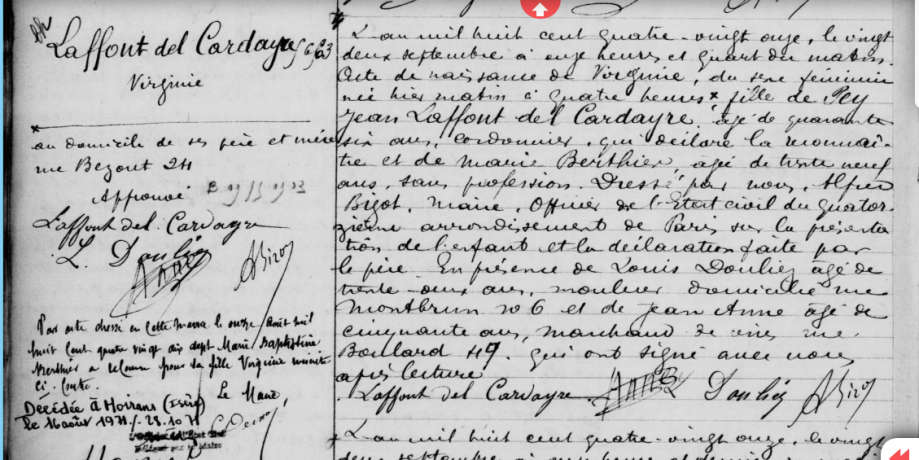 Laffont del Cardayre
Virginie
au domicile de ses père et mère
rue Bezout 24
Approuvé
Laffont del Cardayre
L. Douliez
ABizot
Par acte dressé en cette Mairie le onze août mil
huit cent quatre vingt dix sept Marie Baptistine
Berthier a reconnu pour sa fille Virginie inscrite
ci-contre.
Le Maire,
Décédée à Moirans (Isère)
le 16 août 1971
L'an mil huit cent quatre-vingt onze, le vingt
deux septembre à onze heures et quart du matin.
Acte de naissance de Virginie, du sexe féminin
née hier matin à quatre heures x fille de Pey
Jean Laffont del Cardayre, âgé de quarante
six ans, cordonnier, qui déclare la reconnaî-
tre et de Marie Berthier, âgé de trente neuf
ans, sans profession. Dressé par nous, Alfred
Bizot, Maire, Officier de l'Etat civil du quator-
zième arrondissement de Paris sur la présenta
tion de l'enfant et la déclaration faite par
le père. En présence de Louis Douliez âgé de
trente deux ans, mouleur domicilié rue
Montbrun no 6 et de Jean Anne âgé de
cinquante ans, marchand de vins rue
Boulard 49. qui ont signé avec nous
après lecture
Laffont del Cardayre Douliez ABizot
L'an mil huit cent quatre-vingt onze, le vingt
deux septembre à